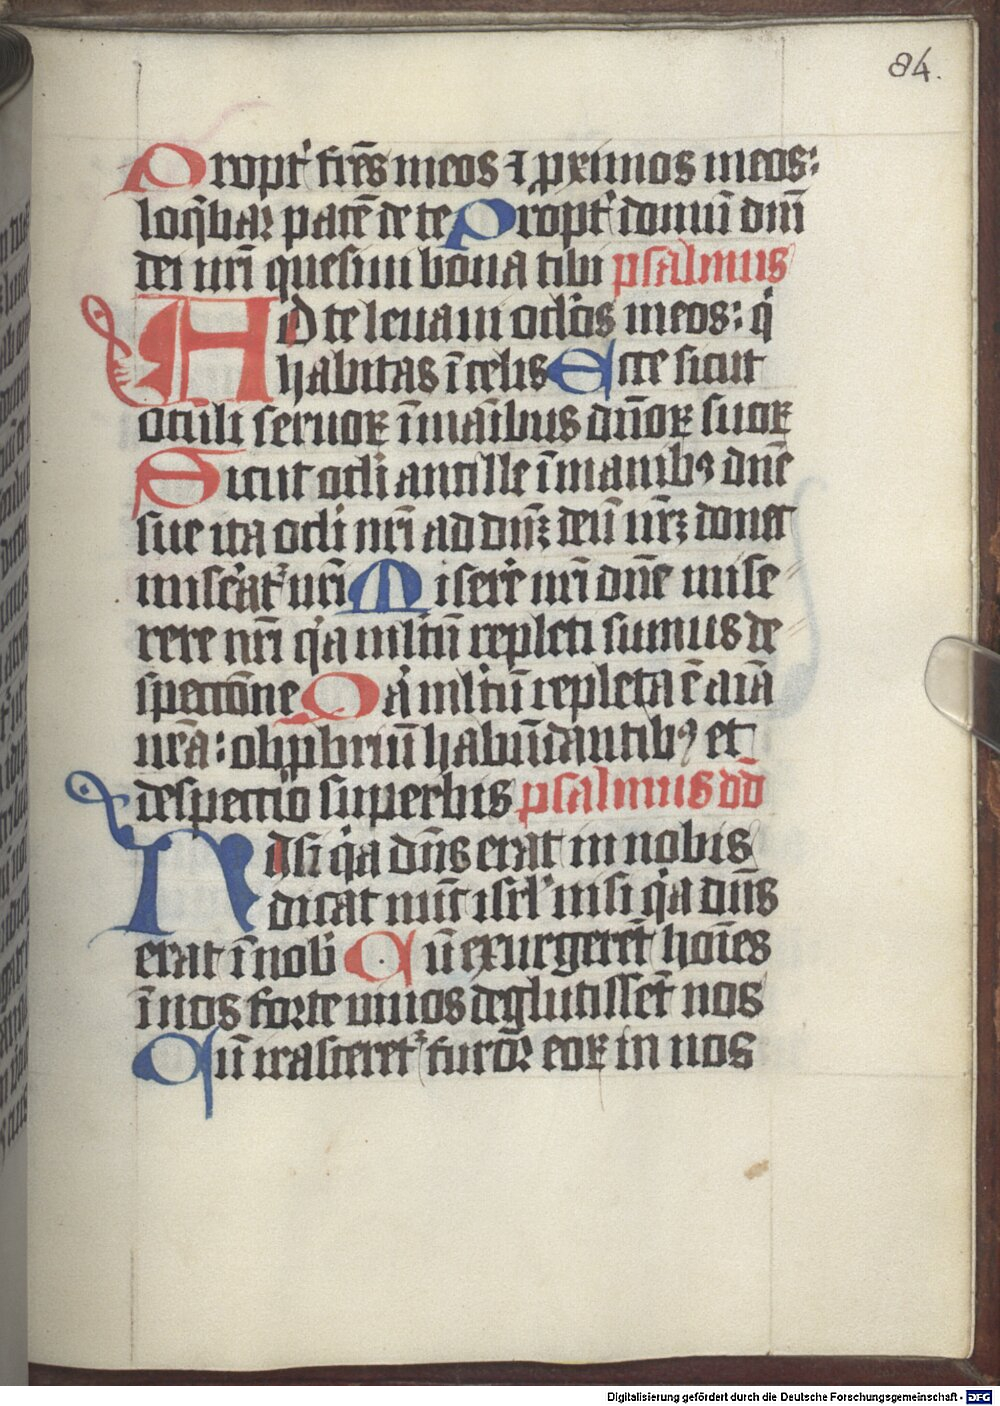 84.
Propt' fr̄es meos ⁊ ꝓximos meos:
loq̄bar pacē de te Propt' domū dn̄i
dei nr̄i quesiui bona tibi psalmus
Ad te leuaui oclos meos: q̇
habitas ī celis Ecce sicut
oculi seruoꝝ ī manibus dn̄oꝝ suoꝝ
Sicut ocli ancille ī manibꝰ dn̄e
sue ita ocli nr̄i ad dn̄ꝫ deū nr̄ꝫ donec
miser̄at' nr̄i Miser̄e nr̄i dn̄e mise
rere nr̄i q̇a ml̄tū repleti sumus de
spectione Qa ml̄tū repleta ē aīa
nr̄a: obprobriū habūdantibꝰ et
despectio superbis psalmus dd̄
Nisi q̇a dn̄s erat in nobis
dicat nūc isrl' nisi q̇a dn̄s
erat ī nob̄ Cū exurgerēt hoīes
ī nos forte viuos deglutissēt nos
Cū irasceret' furor eoꝝ in nos
Digitalisierung gefördert durch die Deutsche Forschungsgemeinschaft - DFG